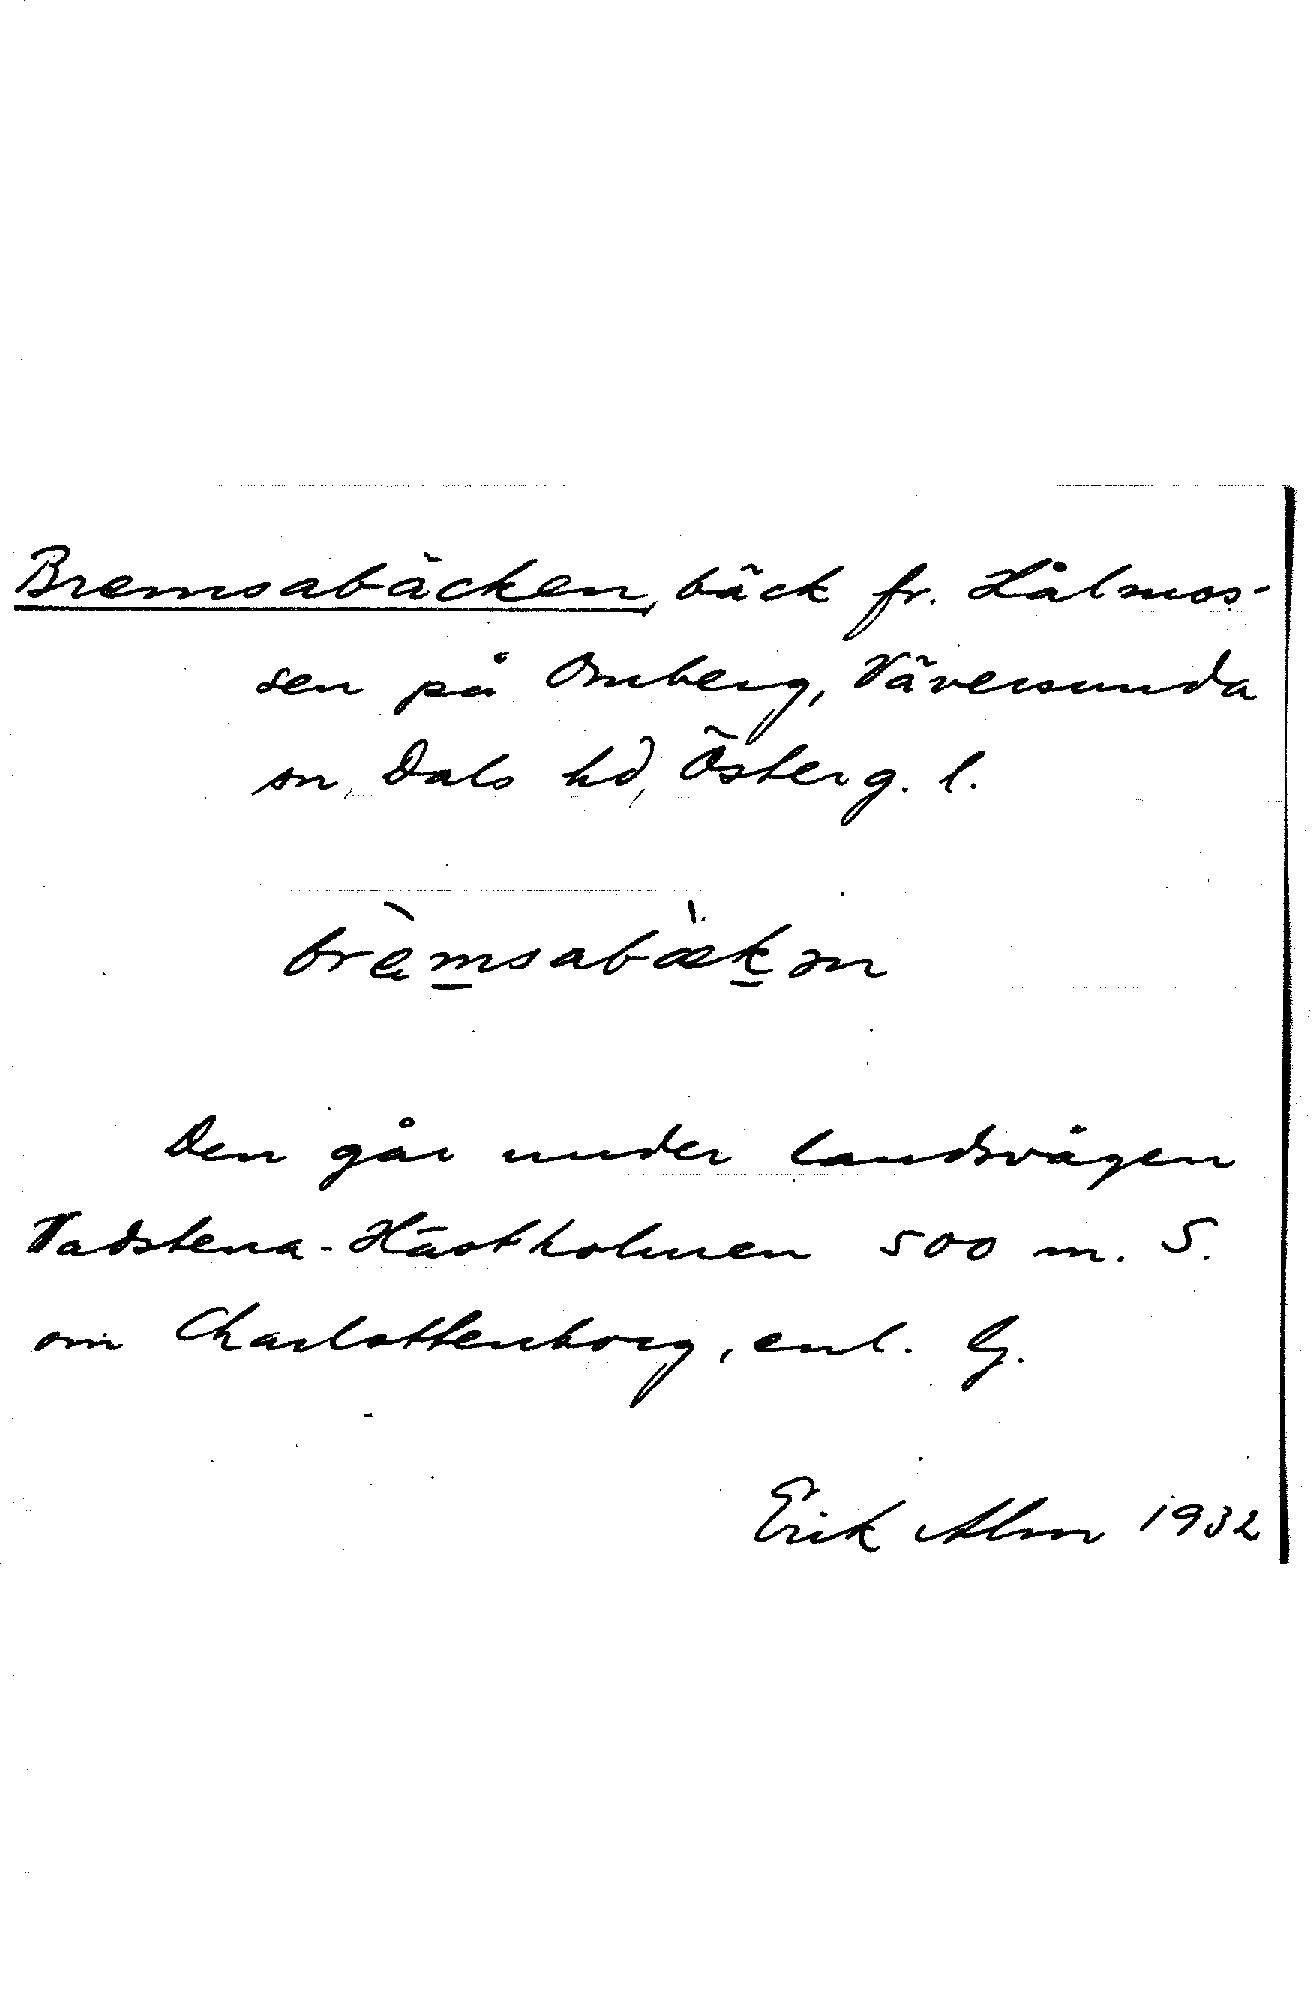 Bremsabäcken, bäck fr. Hålmos-
sen på Omberg, Väversunda
sn, Dals hd, Österg. l.
brèmsabækən
Den går under landsvägen
Vadstena-Hästholmen 500 m. S.
om Charlottenborg, enl. G.
Erik Alm 1932